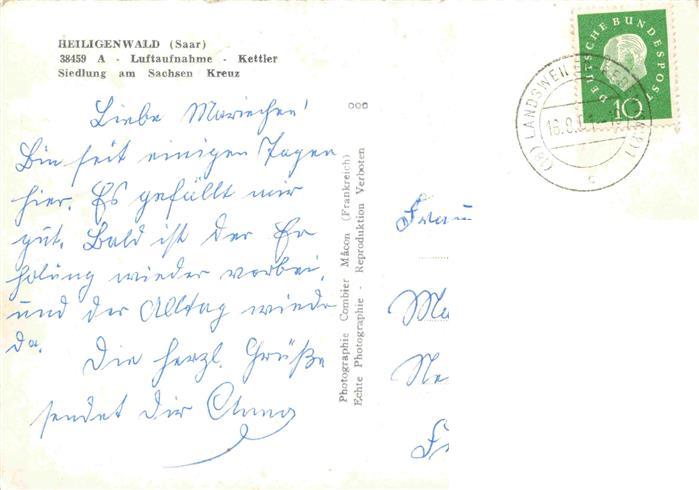 HEILIGENWALD (Saar)
38459 A - Luftaufnahme - Kettler
Siedlung am Sachsen Kreuz
Liebe Mariechen!
Bin seit einigen Tagen
hier. Es gefällt mir
gut. Bald ist der Er
holung wieder vorbei,
und der Alltag wieder
da.
Die herzl. Grüße
sendet dir Anna
Photographie Combier Mâcon (Frankreich)
Echte Photographie - Reproduktion Verboten
DEUTSCHE BUNDESPOST
10
(18) LANDSWEILER
Frau